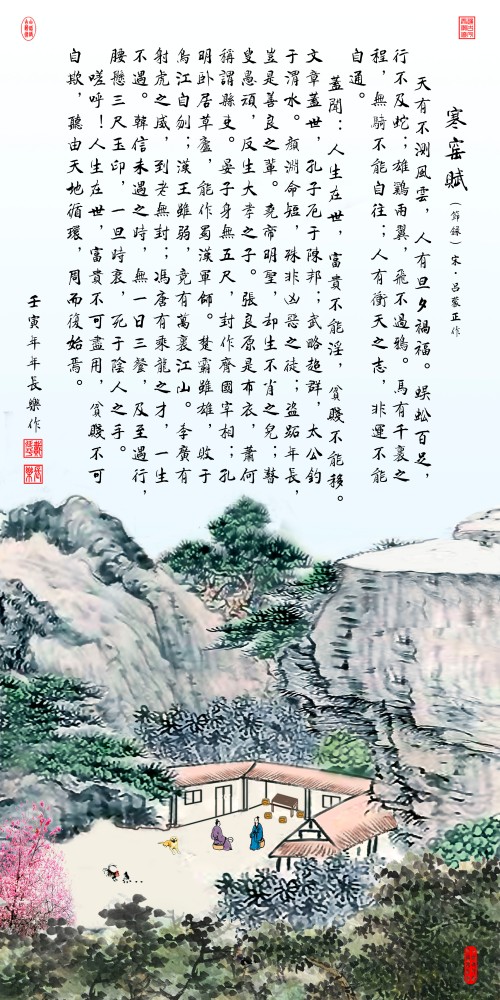 寒窑賦(節錄)宋·呂蒙正作
天有不測風雲，人有旦夕禍福。蜈蚣百足，
行不及蛇；雄鷄兩翼，飛不過鴉。馬有千裏之
程，無騎不能自往；人有衝天之志，非運不能
自通。
蓋聞：人生在世，富貴不能淫，貧賤不能移。
文章蓋世，孔子厄于陳邦；武略超群，太公釣
于渭水。顏淵命短，殊非凶惡之徒；盗跖年長，
豈是善良之輩。堯帝明聖，却生不肖之兒；瞽
叟愚頑，反生大孝之子。張良原是布衣，蕭何
稱謂縣吏。晏子身無五尺，封作齊國宰相；孔
明卧居草廬，能作蜀漢軍師。楚霸雖雄，敗于
烏江自刎；漢王雖弱，竟有萬裏江山。李廣有
射虎之威，到老無封；馮唐有乘龍之才，一生
不遇。韓信未遇之時，無一日三餐，及至遇行，
腰懸三尺玉印，一旦時衰，死于陰人之手。
嗟呼！人生在世，富貴不可盡用，貧賤不可
自欺，聽由天地循環，周而復始焉。
壬寅年年長樂作